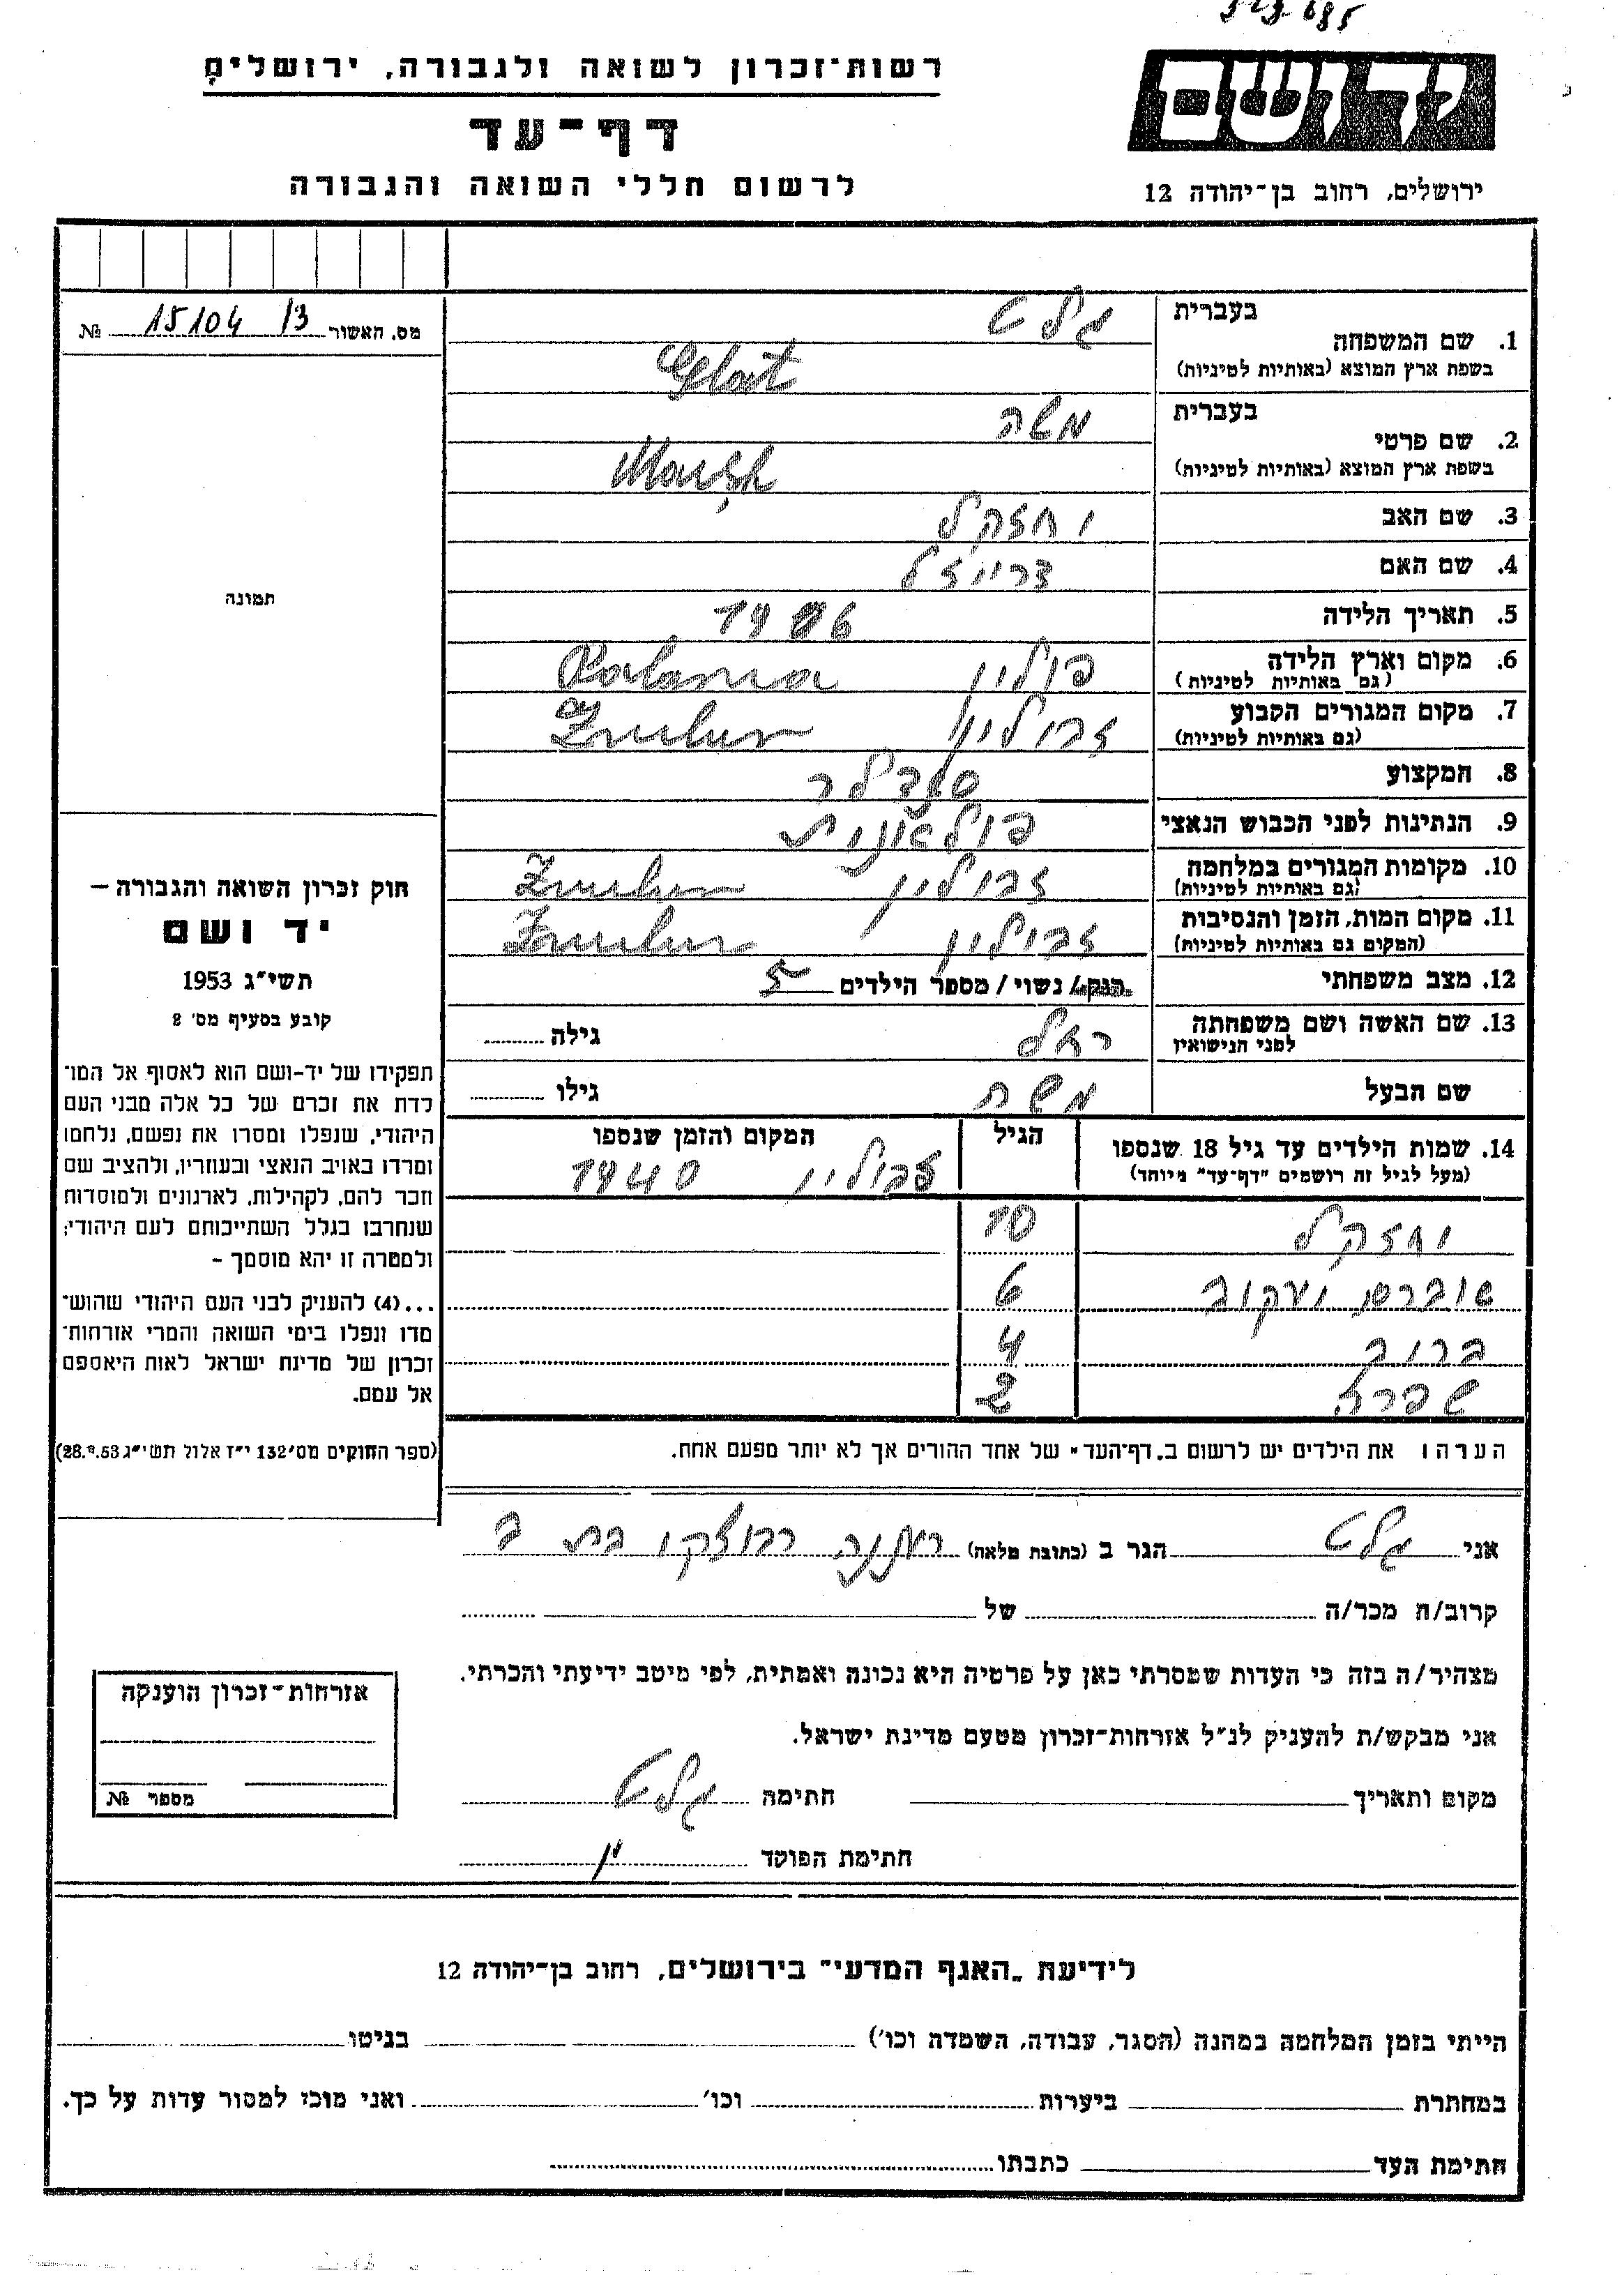 רשות־זכרון לשואה ולגבורה, ירושלים
דף־עד
לרשום חללי השואה והגבורה
יד ושם
ירושלים, רחוב בן־יהודה 12
מס. האשור 15104 /3 №
תמונה
חוק זכרון השואה והגבורה –
יד ושם
תשי״ג 1953
קובע בסעיף מס׳ 2
תפקידו של יד-ושם הוא לאסוף אל המו־
לדת את זכרם של כל אלה מבני העם
היהודי, שנפלו ומסרו את נפשם, נלחמו
ומרדו באויב הנאצי ובעוזריו, ולהציב שם
וזכר להם, לקהילות, לארגונים ולמוסדות
שנחרבו בגלל השתייכותם לעם היהודי;
ולמטרה זו יהא מוסמך –
...(4) להעניק לבני העם היהודי שהוש־
מדו ונפלו בימי השואה והמרי אזרחות־
זכרון של מדינת ישראל לאות היאספם
אל עמם.
(ספר החוקים מס׳ 132 י״ז אלול תשי״ג 28.8.53)
בעברית גלט
1. שם המשפחה
בשפת ארץ המוצא (באותיות לטיניות) Glat
בעברית משה
2. שם פרטי
בשפת ארץ המוצא (באותיות לטיניות)
3. שם האב יחזקל
4. שם האם דרייזל
5. תאריך הלידה
6. מקום וארץ הלידה פולין
(גם באותיות לטיניות)
7. מקום המגורים הקבוע זבולין
(גם באותיות לטיניות)
8. המקצוע
9. הנתינות לפני הכבוש הנאצי
10. מקומות המגורים במלחמה זבולין
(גם באותיות לטיניות)
11. מקום המות, הזמן והנסיבות זבולין
(המקום גם באותיות לטיניות)
12. מצב משפחתי רווק / נשוי / מספר הילדים 5
13. שם האשה ושם משפחתה רחל גילה
לפני הנישואין
שם הבעל משה גילו
14. שמות הילדים עד גיל 18 שנספו הגיל המקום והזמן שנספו
(מעל לגיל זה רושמים "דף-עד" מיוחד) זבולין 1940
יחזקל 10
יעקוב 6
ברוך 4
2
הערה: את הילדים יש לרשום ב„דף-העד״ של אחד ההורים אך לא יותר מפעם אחת.
אני גלט הגר ב (כתובת מלאה) רעננה
קרוב/ה מכר/ה של
מצהיר/ה בזה כי העדות שמסרתי כאן על פרטיה היא נכונה ואמתית, לפי מיטב ידיעתי והכרתי.
אני מבקש/ת להעניק לנ״ל אזרחות-זכרון מטעם מדינת ישראל.
מקום ותאריך חתימה גלט
חתימת הפוקד
אזרחות-זכרון הוענקה
מספר №
לידיעת „האגף המדעי״ בירושלים, רחוב בן-יהודה 12
הייתי בזמן המלחמה במחנה (הסגר, עבודה, השמדה וכו׳) בגיטו
במחתרת ביערות וכו׳ ואני מוכן למסור עדות על כך.
חתימת העד כתבתו